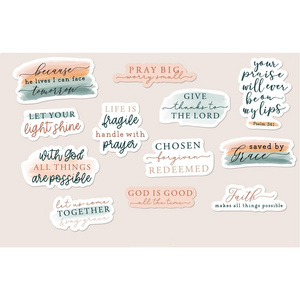 because
he lives I can face
tomorrow
PRAY BIG
worry small
your
praise
will ever
be on
my lips
Psalm 34:1
LET YOUR
light shine
LIFE IS
fragile
handle with
prayer
GIVE
thanks to
THE LORD
with God
ALL THINGS
are possible
CHOSEN
forgiven
REDEEMED
saved by
Grace
let us come
TOGETHER
GOD IS GOOD
all the time
Faith
makes all things possible